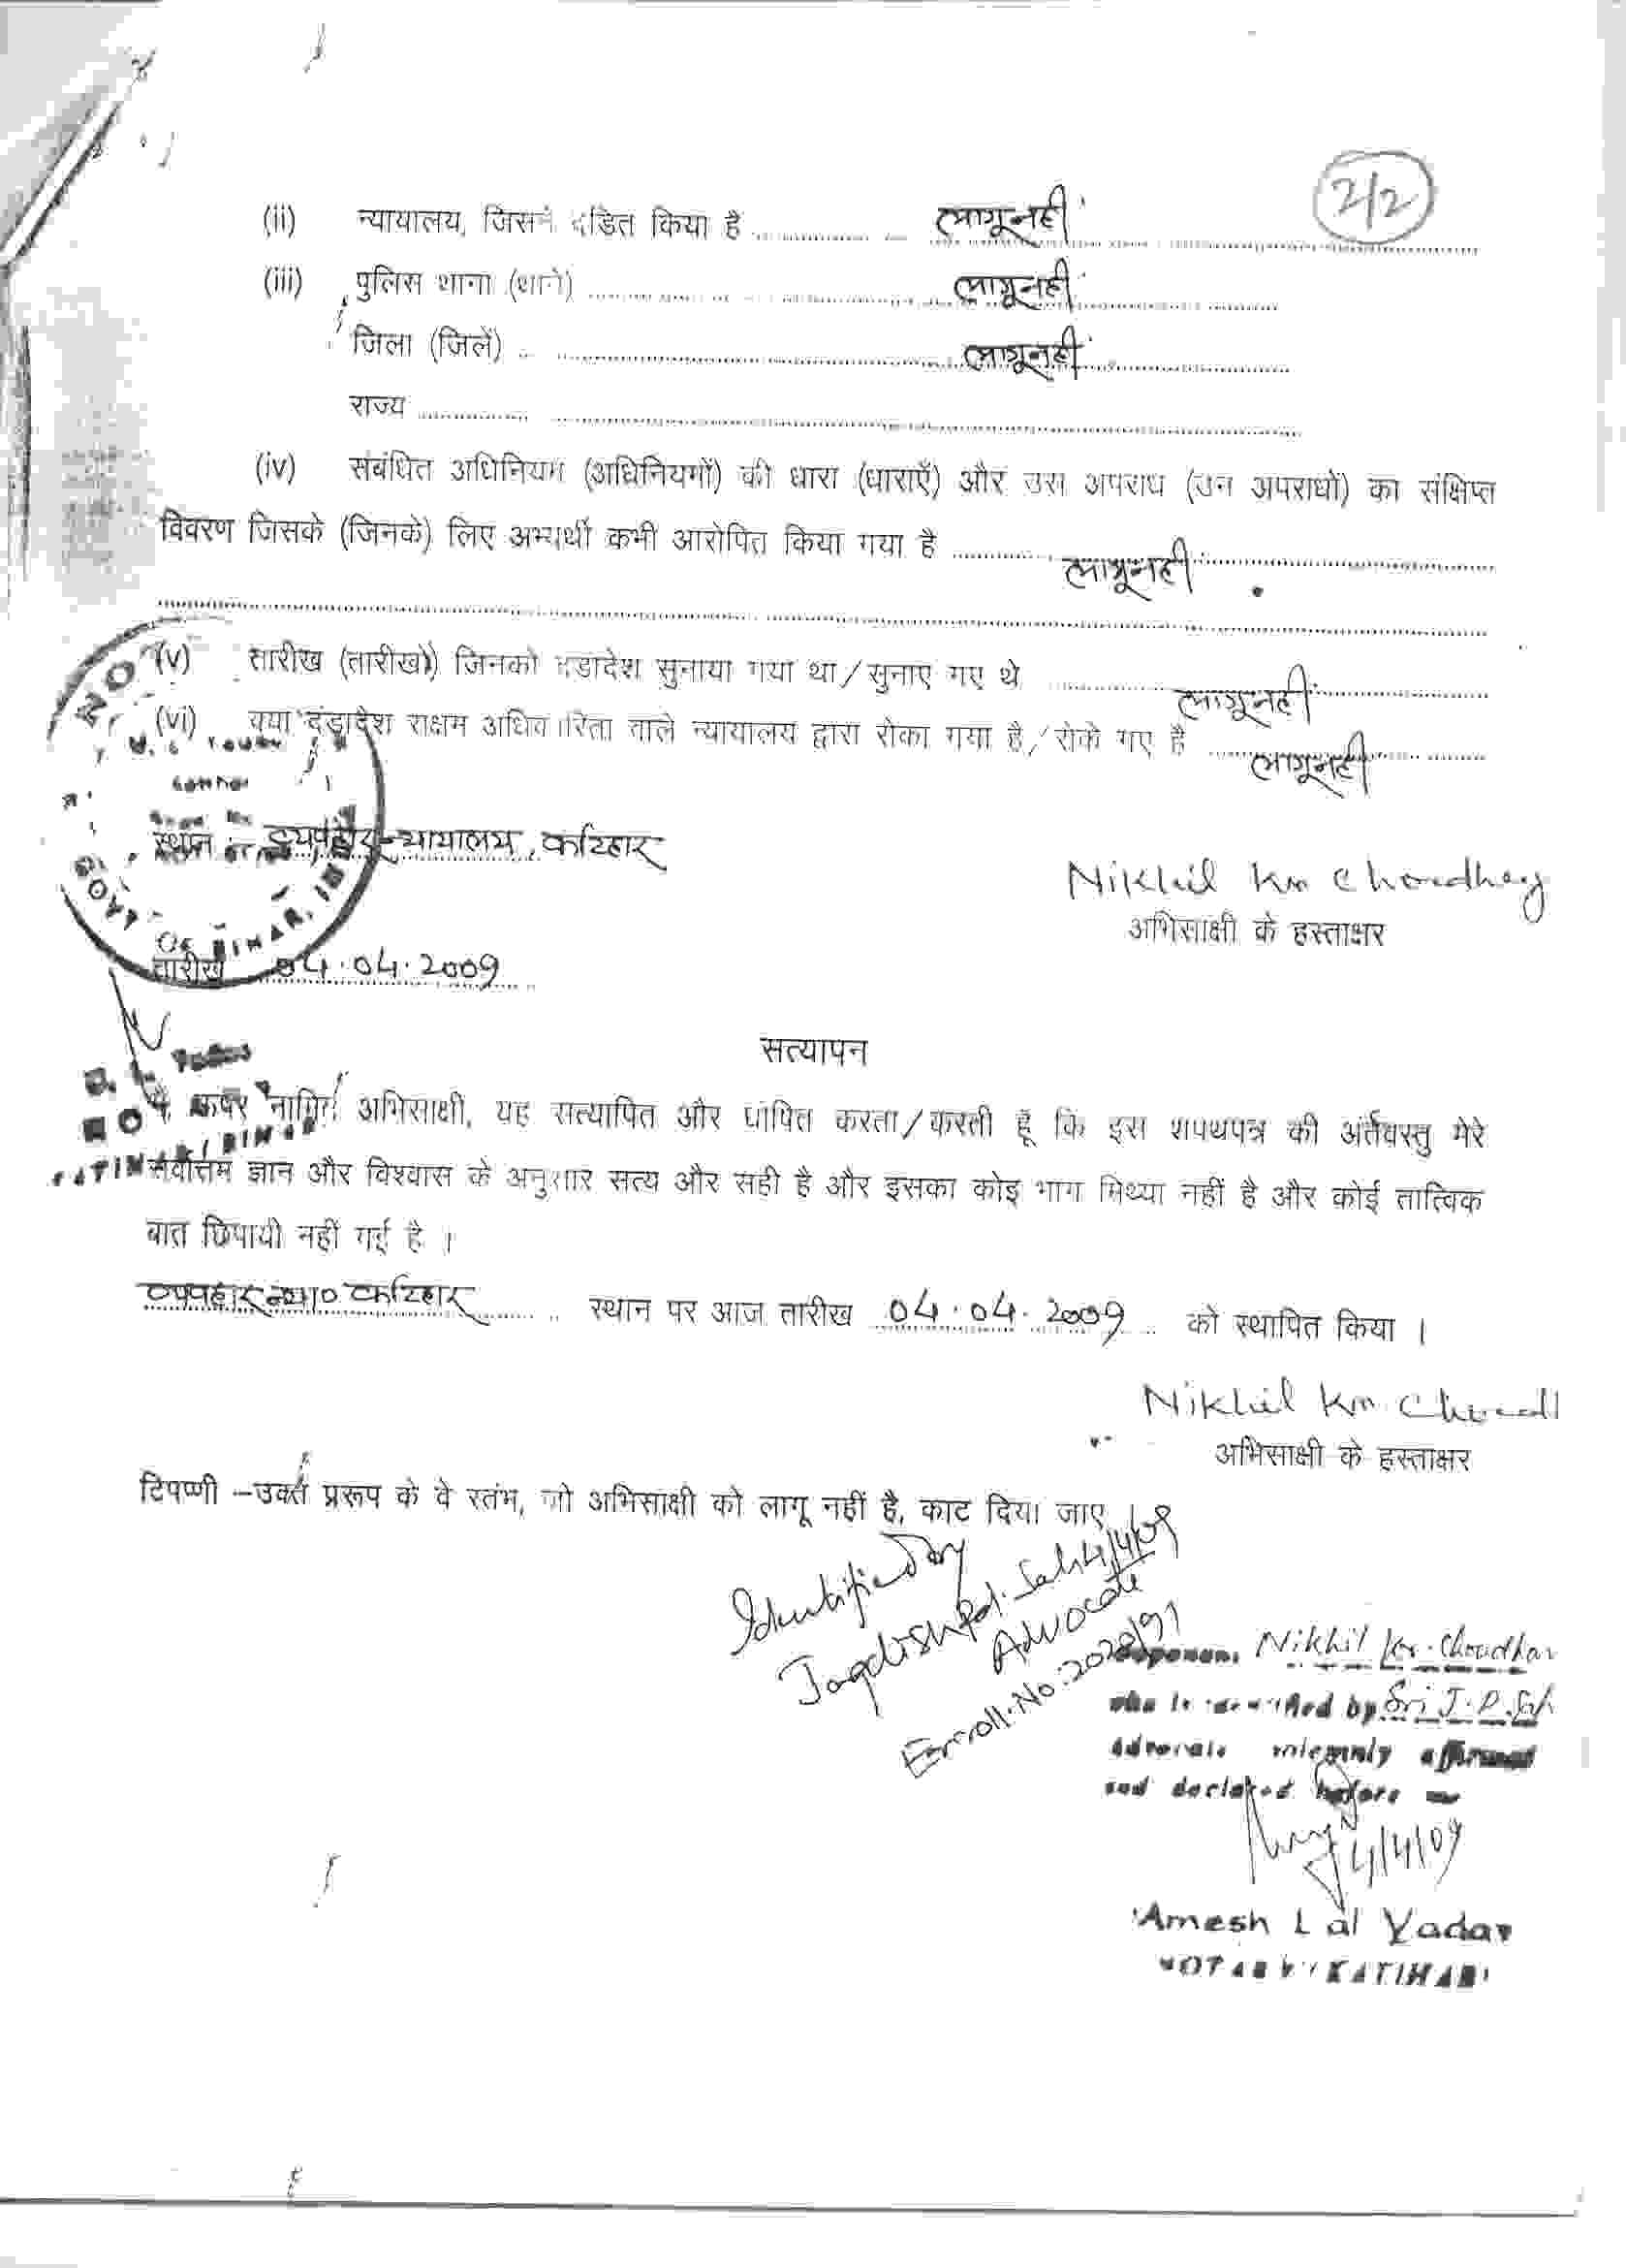 2/2
(ii) न्यायालय, जिसने दंडित किया है लागू नहीं
(iii) पुलिस थाना (थाने) लागू नहीं
जिला (जिलें) लागू नहीं
राज्य
(iv) संबंधित अधिनियम (अधिनियमों) की धारा (धाराएँ) और उस अपराध (उन अपराधों) का संक्षिप्त
विवरण जिसके (जिनके) लिए अभ्यर्थी कभी आरोपित किया गया है लागू नहीं
(v) तारीख (तारीखों) जिनको दंडादेश सुनाया गया था/सुनाए गए थे लागू नहीं
(vi) क्या दंडादेश सक्षम अधिकारिता वाले न्यायालय द्वारा रोका गया है/रोके गए है लागू नहीं
स्थान व्यवहार न्यायालय, कटिहार
Nikhil Km Choudhary
अभिसाक्षी के हस्ताक्षर
तारीख 04.04.2009
सत्यापन
मैं, ऊपर नामित अभिसाक्षी, यह सत्यापित और घोषित करता/करती हूँ कि इस शपथपत्र की अंर्तवस्तु मेरे
सर्वोत्तम ज्ञान और विश्वास के अनुसार सत्य और सही है और इसका कोइ भाग मिथ्या नहीं है और कोई तात्विक
बात छिपायी नहीं गई है ।
व्यवहार न्या० कटिहार स्थान पर आज तारीख 04.04.2009 को स्थापित किया ।
Nikhil Km. Choudh
अभिसाक्षी के हस्ताक्षर
टिपण्णी –उक्त प्ररूप के वे स्तंभ, जो अभिसाक्षी को लागू नहीं है, काट दिया जाए
Identified by
Jagdish Pd. Sah 4/4/09
Advocate
Enroll. No: 2028/91
Deponent Nikhil Kr. Choudhar
who is identified by Sri J. P. Sah
Advocate solemnly affirmed
and declared before me
4/4/09
Amesh Lal Yadav
NOTARY KATIHAR